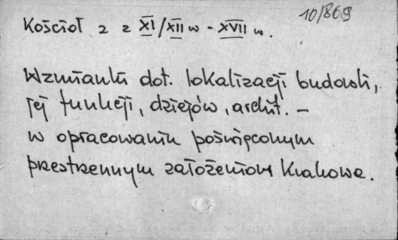 10/869
Kościół z z XI/XII w - XVII w.
Wzmianki dot. lokalizacji budowli,
jej funkcji, dziejów, archit. –
w opracowaniu poświęconym
przestrzennym założeniom Krakowa.